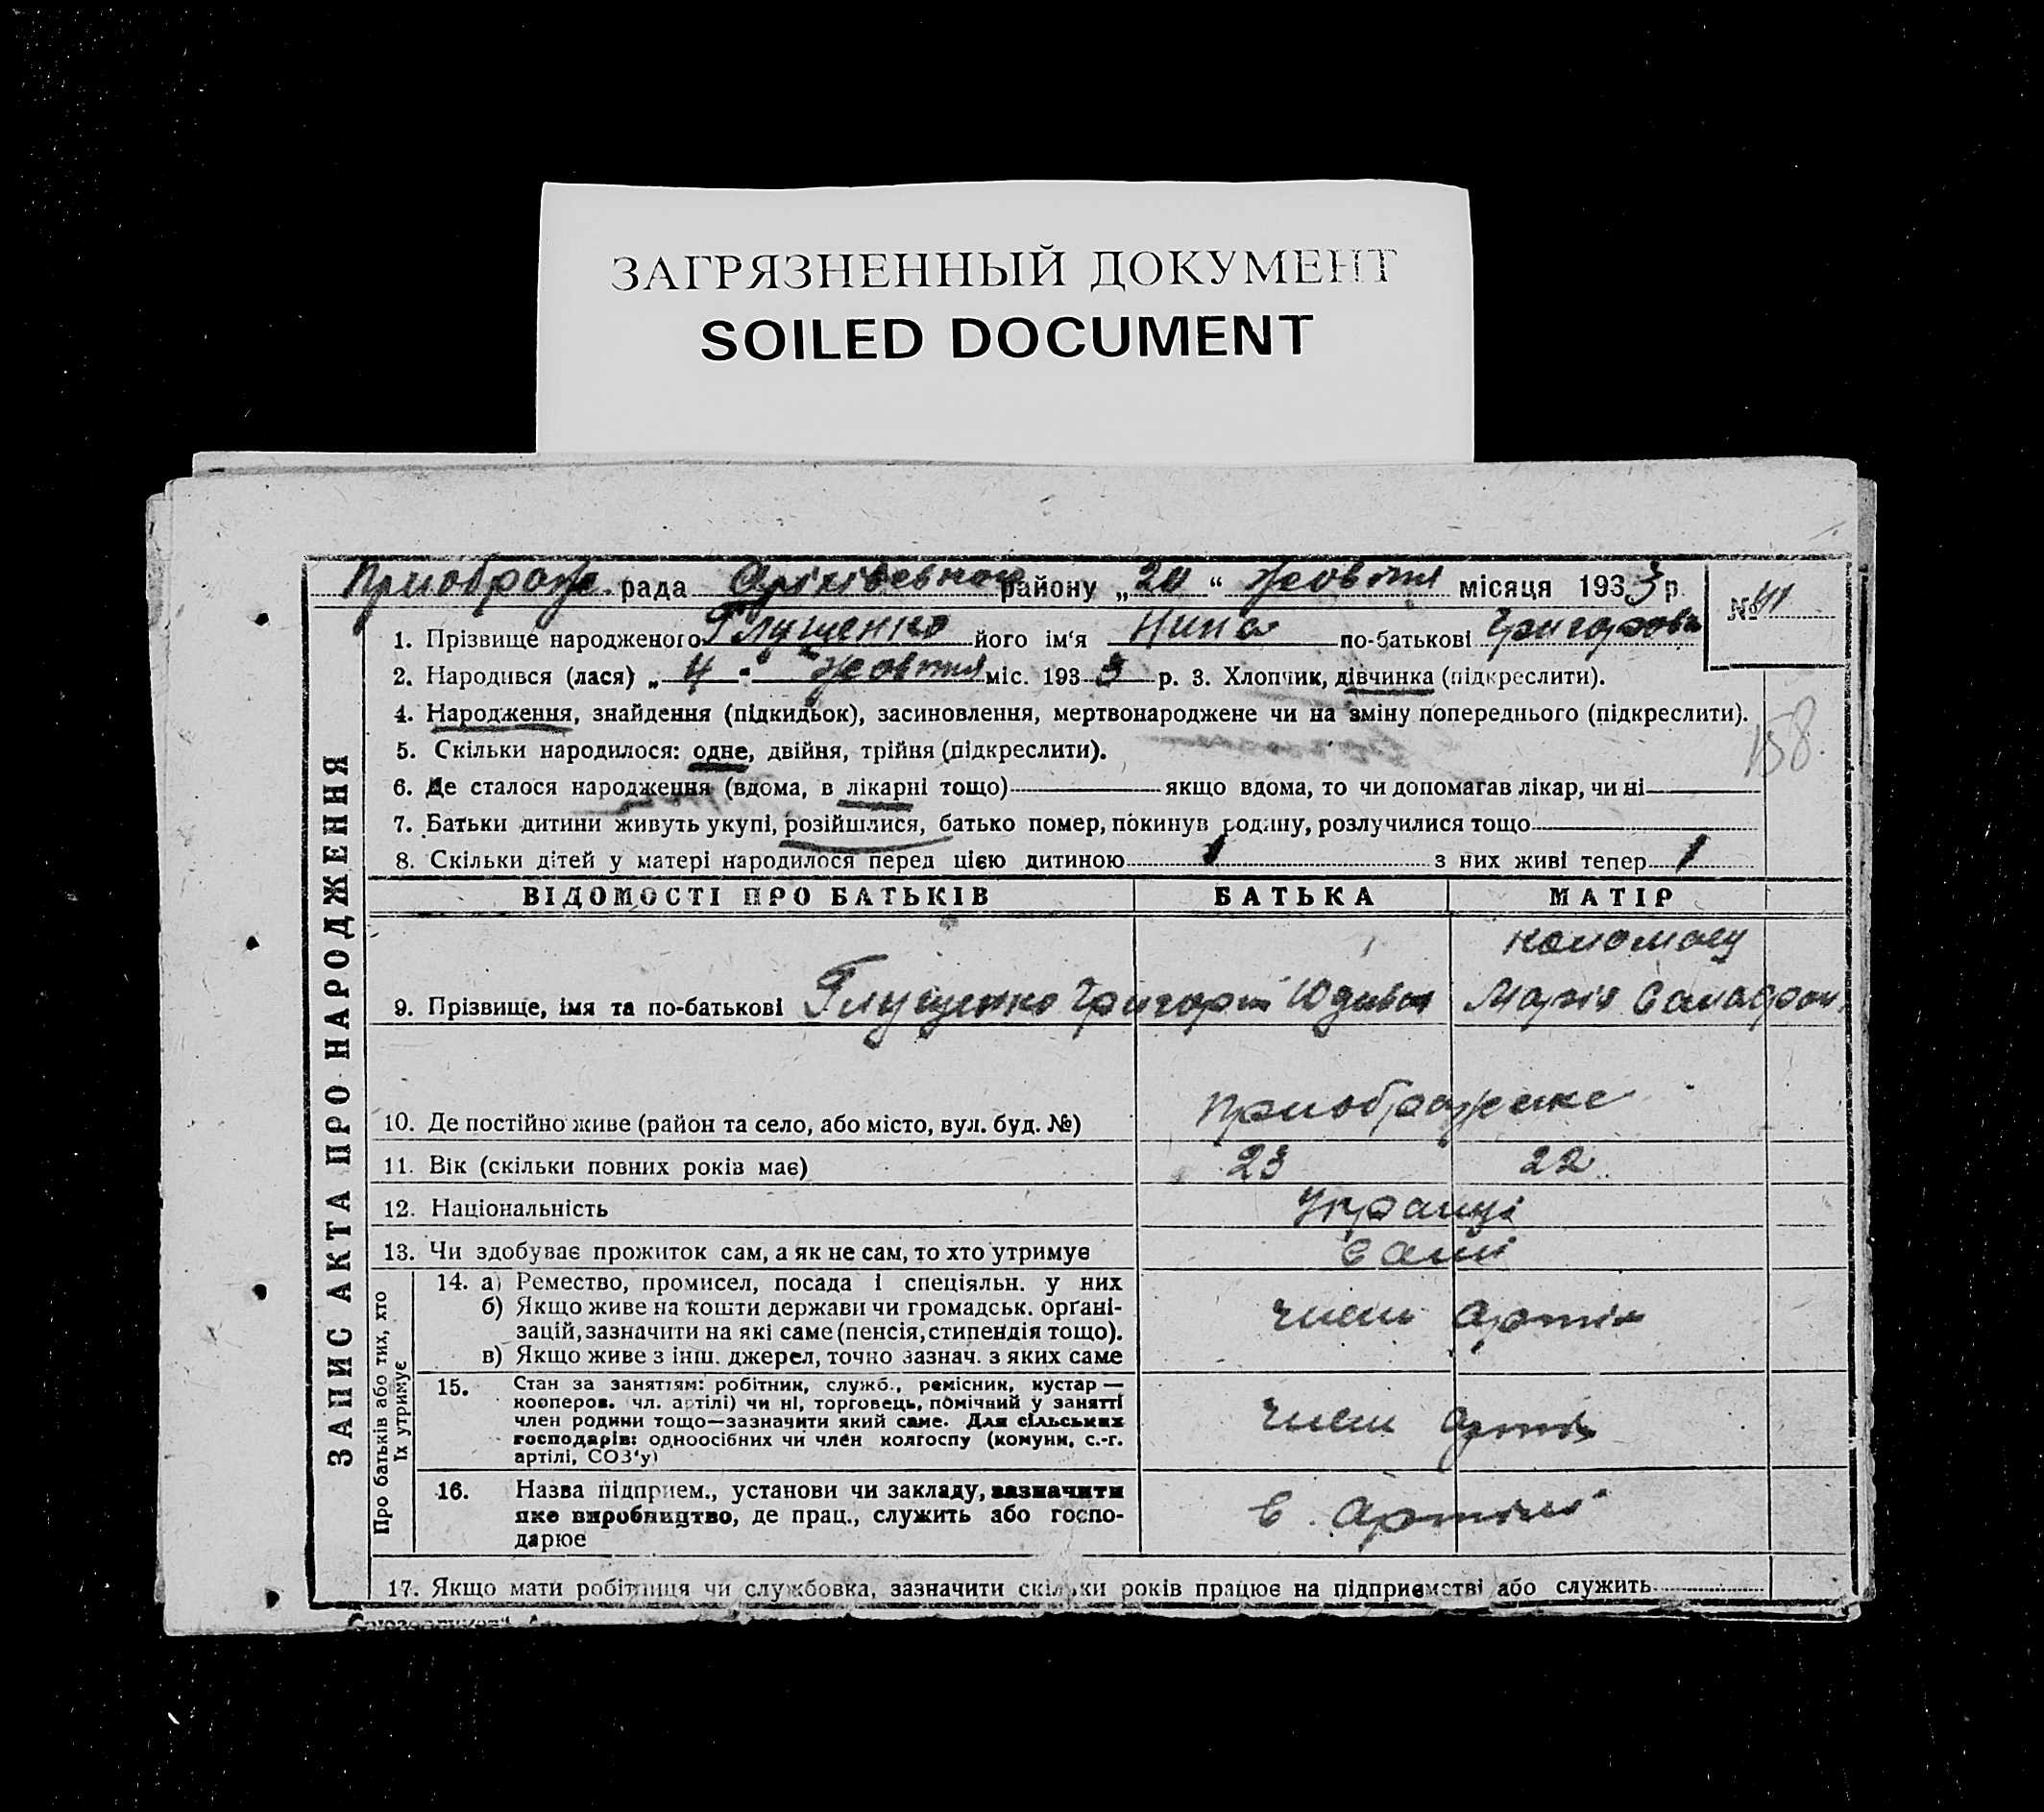 ЗАГРЯЗНЕННЫЙ ДОКУМЕНТ
SOILED DOCUMENT
Приображ. рада району „20“ Жовтня місяця 1933 р. № 41
1. Прізвище народженого Глущенко його ім‘я Нина по-батькові Григоровн
2. Народився (лася) „4“ Жовтня міс. 1933 р. 3. Хлопчик, дівчинка (підкреслити).
4. Народження, знайдення (підкидьок), засиновлення, мертвонароджене чи на зміну попереднього (підкреслити).
158.
5. Скільки народилося: одне, двійня, трійня (підкреслити).
6. Де сталося народження (вдома, в лікарні тощо) якщо вдома, то чи допомагав лікар, чи ні
7. Батьки дитини живуть укупі, розійшлися, батько помер, покинув родину, розлучилися тощо
8. Скільки дітей у матері народилося перед цією дитиною 1 з них живі тепер 1
ЗАПИС АКТА ПРО НАРОДЖЕННЯ
ВІДОМОСТІ ПРО БАТЬКІВ БАТЬКА МАТІР
9. Прізвище, імя та по-батькові Глущенко Григорій Марія
10. Де постійно живе (район та село, або місто, вул. буд. №) Приображенке
11. Вік (скільки повних років має) 23 22
12. Національність Украинці
13. Чи здобуває прожиток сам, а як не сам, то хто утримує Сами
Про батьків або тих, хто
їх утримує
14. а) Ремество, промисел, посада і спеціяльн. у них
б) Якщо живе на кошти держави чи громадськ. орґані-
зацій, зазначити на які саме (пенсія, стипендія тощо). член артіл
в) Якщо живе з інш. джерел, точно зазнач. з яких саме
15. Стан за заняттям: робітник, служб., ремісник, кустар —
кооперов. (чл. артілі) чи ні, торговець, помічний у занятті
член родини тощо—зазначити який саме. Для сільських член артіл
господарів: одноосібних чи член колгоспу (комуни, с.-г.
артілі, СОЗ‘у)
16. Назва підприєм., установи чи закладу, зазначити
яке виробництво, де прац., служить або госпо- в. Артілі
дарює
17. Якщо мати робітниця чи службовка, зазначити скільки років працює на підприємстві або служить